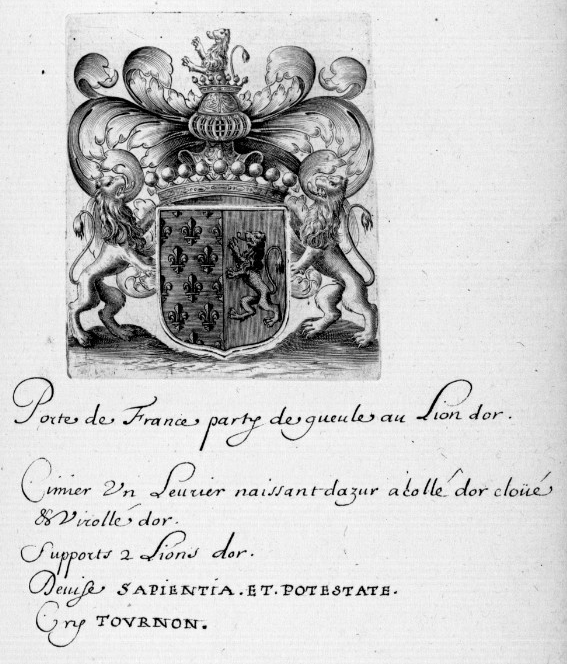 Porte de France party de gueule au Lion dor.
Cimier Vn Leurier naissant dazur acollé dor cloüé
& Virollé dor.
Supports 2 Lions dor.
Deuise SAPIENTIA.ET.POTESTATE.
Cry TOVRNON.